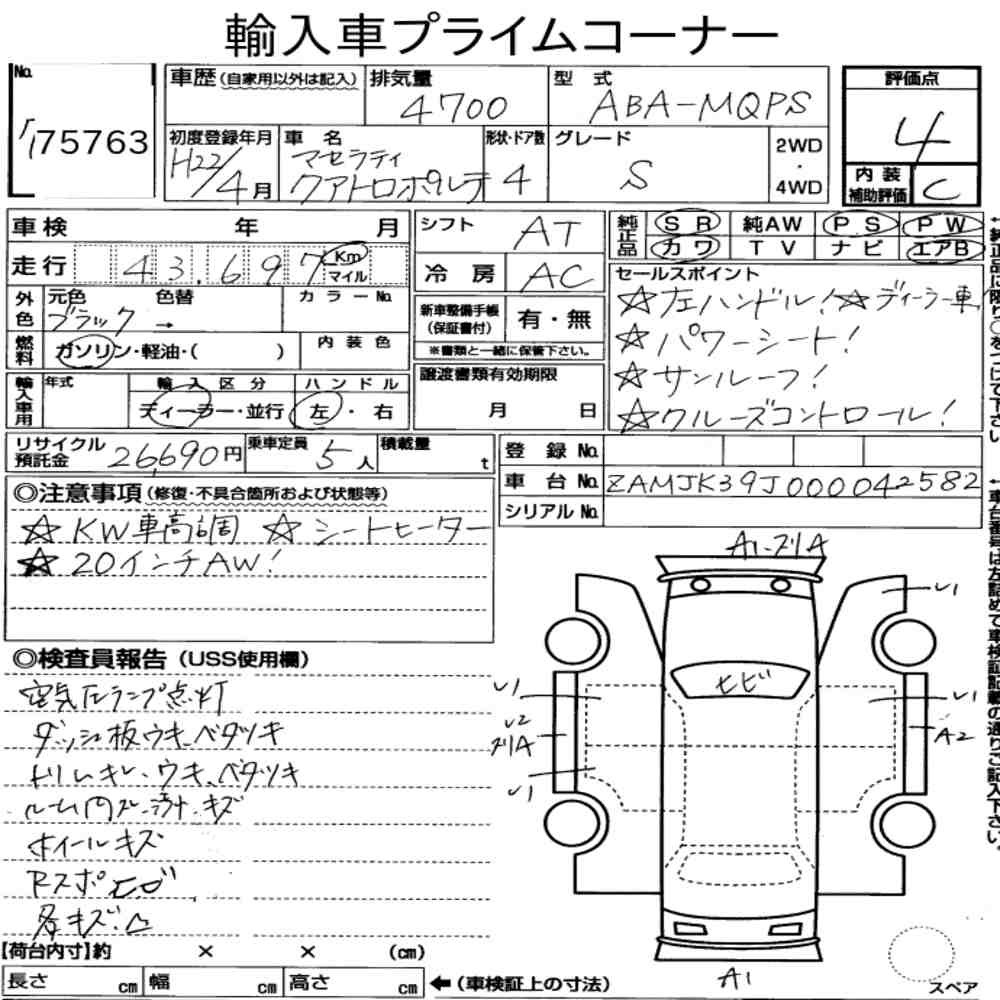 輸入車プライムコーナー
No.
75763
車歴(自家用以外は記入)
排気量
4700
型式
ABA-MQPS
評価点
4
初度登録年月
H22/4月
車名
マセラティ
クアトロポルテ
形状・ドア数
4
グレード
S
2WD
・
4WD
内装
補助評価
C
車検 年 月
シフト
AT
純正品
SR 純AW PS PW
カワ TV ナビ エアB
走行
43,697
Km
マイル
冷房
AC
セールスポイント
☆左ハンドル!☆ディーラー車
☆パワーシート!
☆サンルーフ!
☆クルーズコントロール!
外色
元色 色替 カラーNo.
ブラック →
新車整備手帳
(保証書付)
有・無
※書類と一緒に保管下さい。
燃料
ガソリン・軽油・( )
内装色
輸入車用
年式
輸入区分
ディーラー・並行
ハンドル
左・右
譲渡書類有効期限
月 日
リサイクル
預託金
26,690円
乗車定員
5人
積載量
t
登録No.
車台No.
ZAMJK39J000042582
シリアルNo.
◎注意事項(修復・不具合箇所および状態等)
☆KW車高調 ☆シートヒーター
☆20インチAW!
◎検査員報告(USS使用欄)
空気圧ランプ点灯
ダッシュ板ウキ、ベタツキ
トリムキレ、ウキ、ベタツキ
ルーム内スレ、汚れ、キズ
ホイールキズ
Rスポヒビ
多キズ凸
A1・スリA
U1
ヒビ
U1
U1
U2
スリA
A2
U1
A1
スペア
【荷台内寸】約 × × (cm)
長さ cm 幅 cm 高さ cm
←(車検証上の寸法)
↑純正品に限り○をつけて下さい
↑車台番号は左詰めで車検証記載の通りご記入下さい。